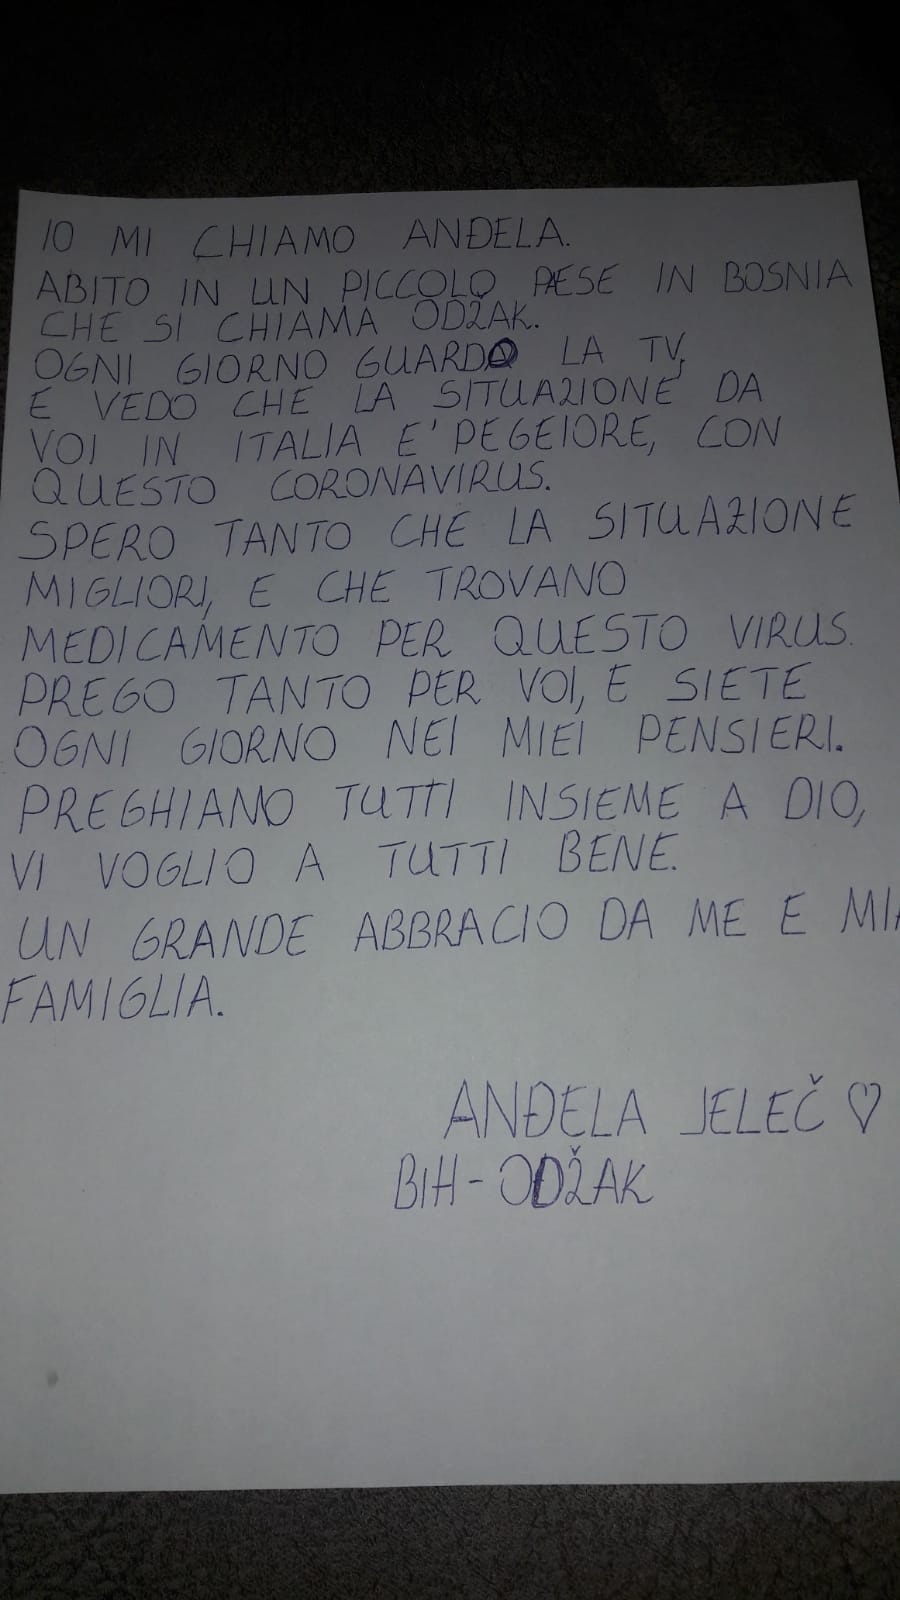 IO MI CHIAMO ANĐELA.
ABITO IN UN PICCOLO PAESE IN BOSNIA
CHE SI CHIAMA ODŽAK.
OGNI GIORNO GUARDO LA TV,
E VEDO CHE LA SITUAZIONE DA
VOI IN ITALIA E' PEGEIORE, CON
QUESTO CORONAVIRUS.
SPERO TANTO CHE LA SITUAZIONE
MIGLIORI, E CHE TROVANO
MEDICAMENTO PER QUESTO VIRUS.
PREGO TANTO PER VOI, E SIETE
OGNI GIORNO NEI MIEI PENSIERI.
PREGHIANO TUTTI INSIEME A DIO,
VI VOGLIO A TUTTI BENE.
UN GRANDE ABBRACIO DA ME E MIA
FAMIGLIA.
ANĐELA JELEČ ♡
BIH-ODŽAK